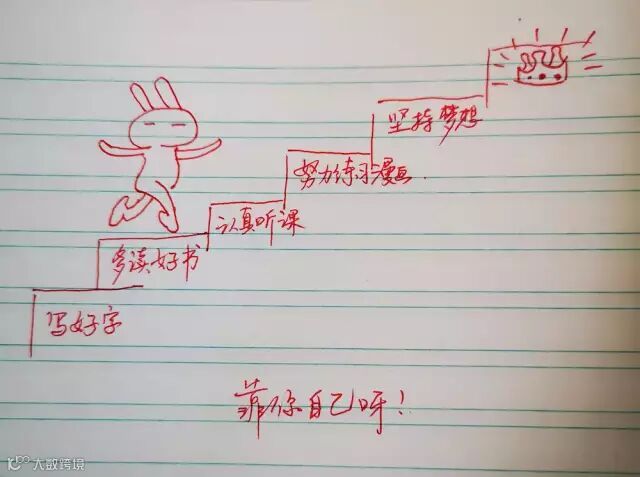 坚持梦想
努力练习漫画.
认真听课
多读好书
写好字
靠你自己呀!
大数跨境